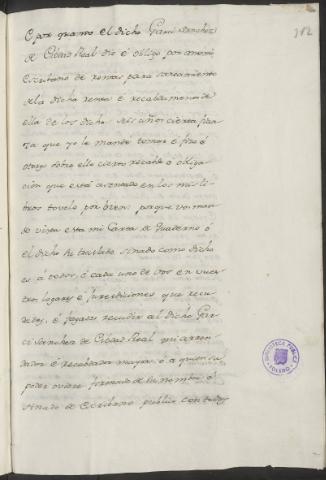 382
E por quanto el dicho Garci Sanchez
de Cibdad Real dio é obligó por ante mi
Escribano de rentas para saneamiento
de la dicha renta é recabamiento de
ella de los dichos seis años cierta fian
za que yo le mandé tomar é fizo é
otorgó sobre ello cierto recabdo é obliga
ción que está asentado en los mis li
bros tovelo por bien porque vos man
do vista esta mi Carta de Quaderno ó
el dicho su traslado sinado como dicho
es á todos, é cada uno de vos en vues
tros lugares é jurediciones que recu
dades, é fagades recudir al dicho Gar
ci Sanchez de Cibdad Real mi arren
dador é recabdador mayor, ó á quien su
poder oviere firmado de su nombre é
sinado de Escribano publico con todos
BIBLIOTECA PUBLICA
TOLEDO